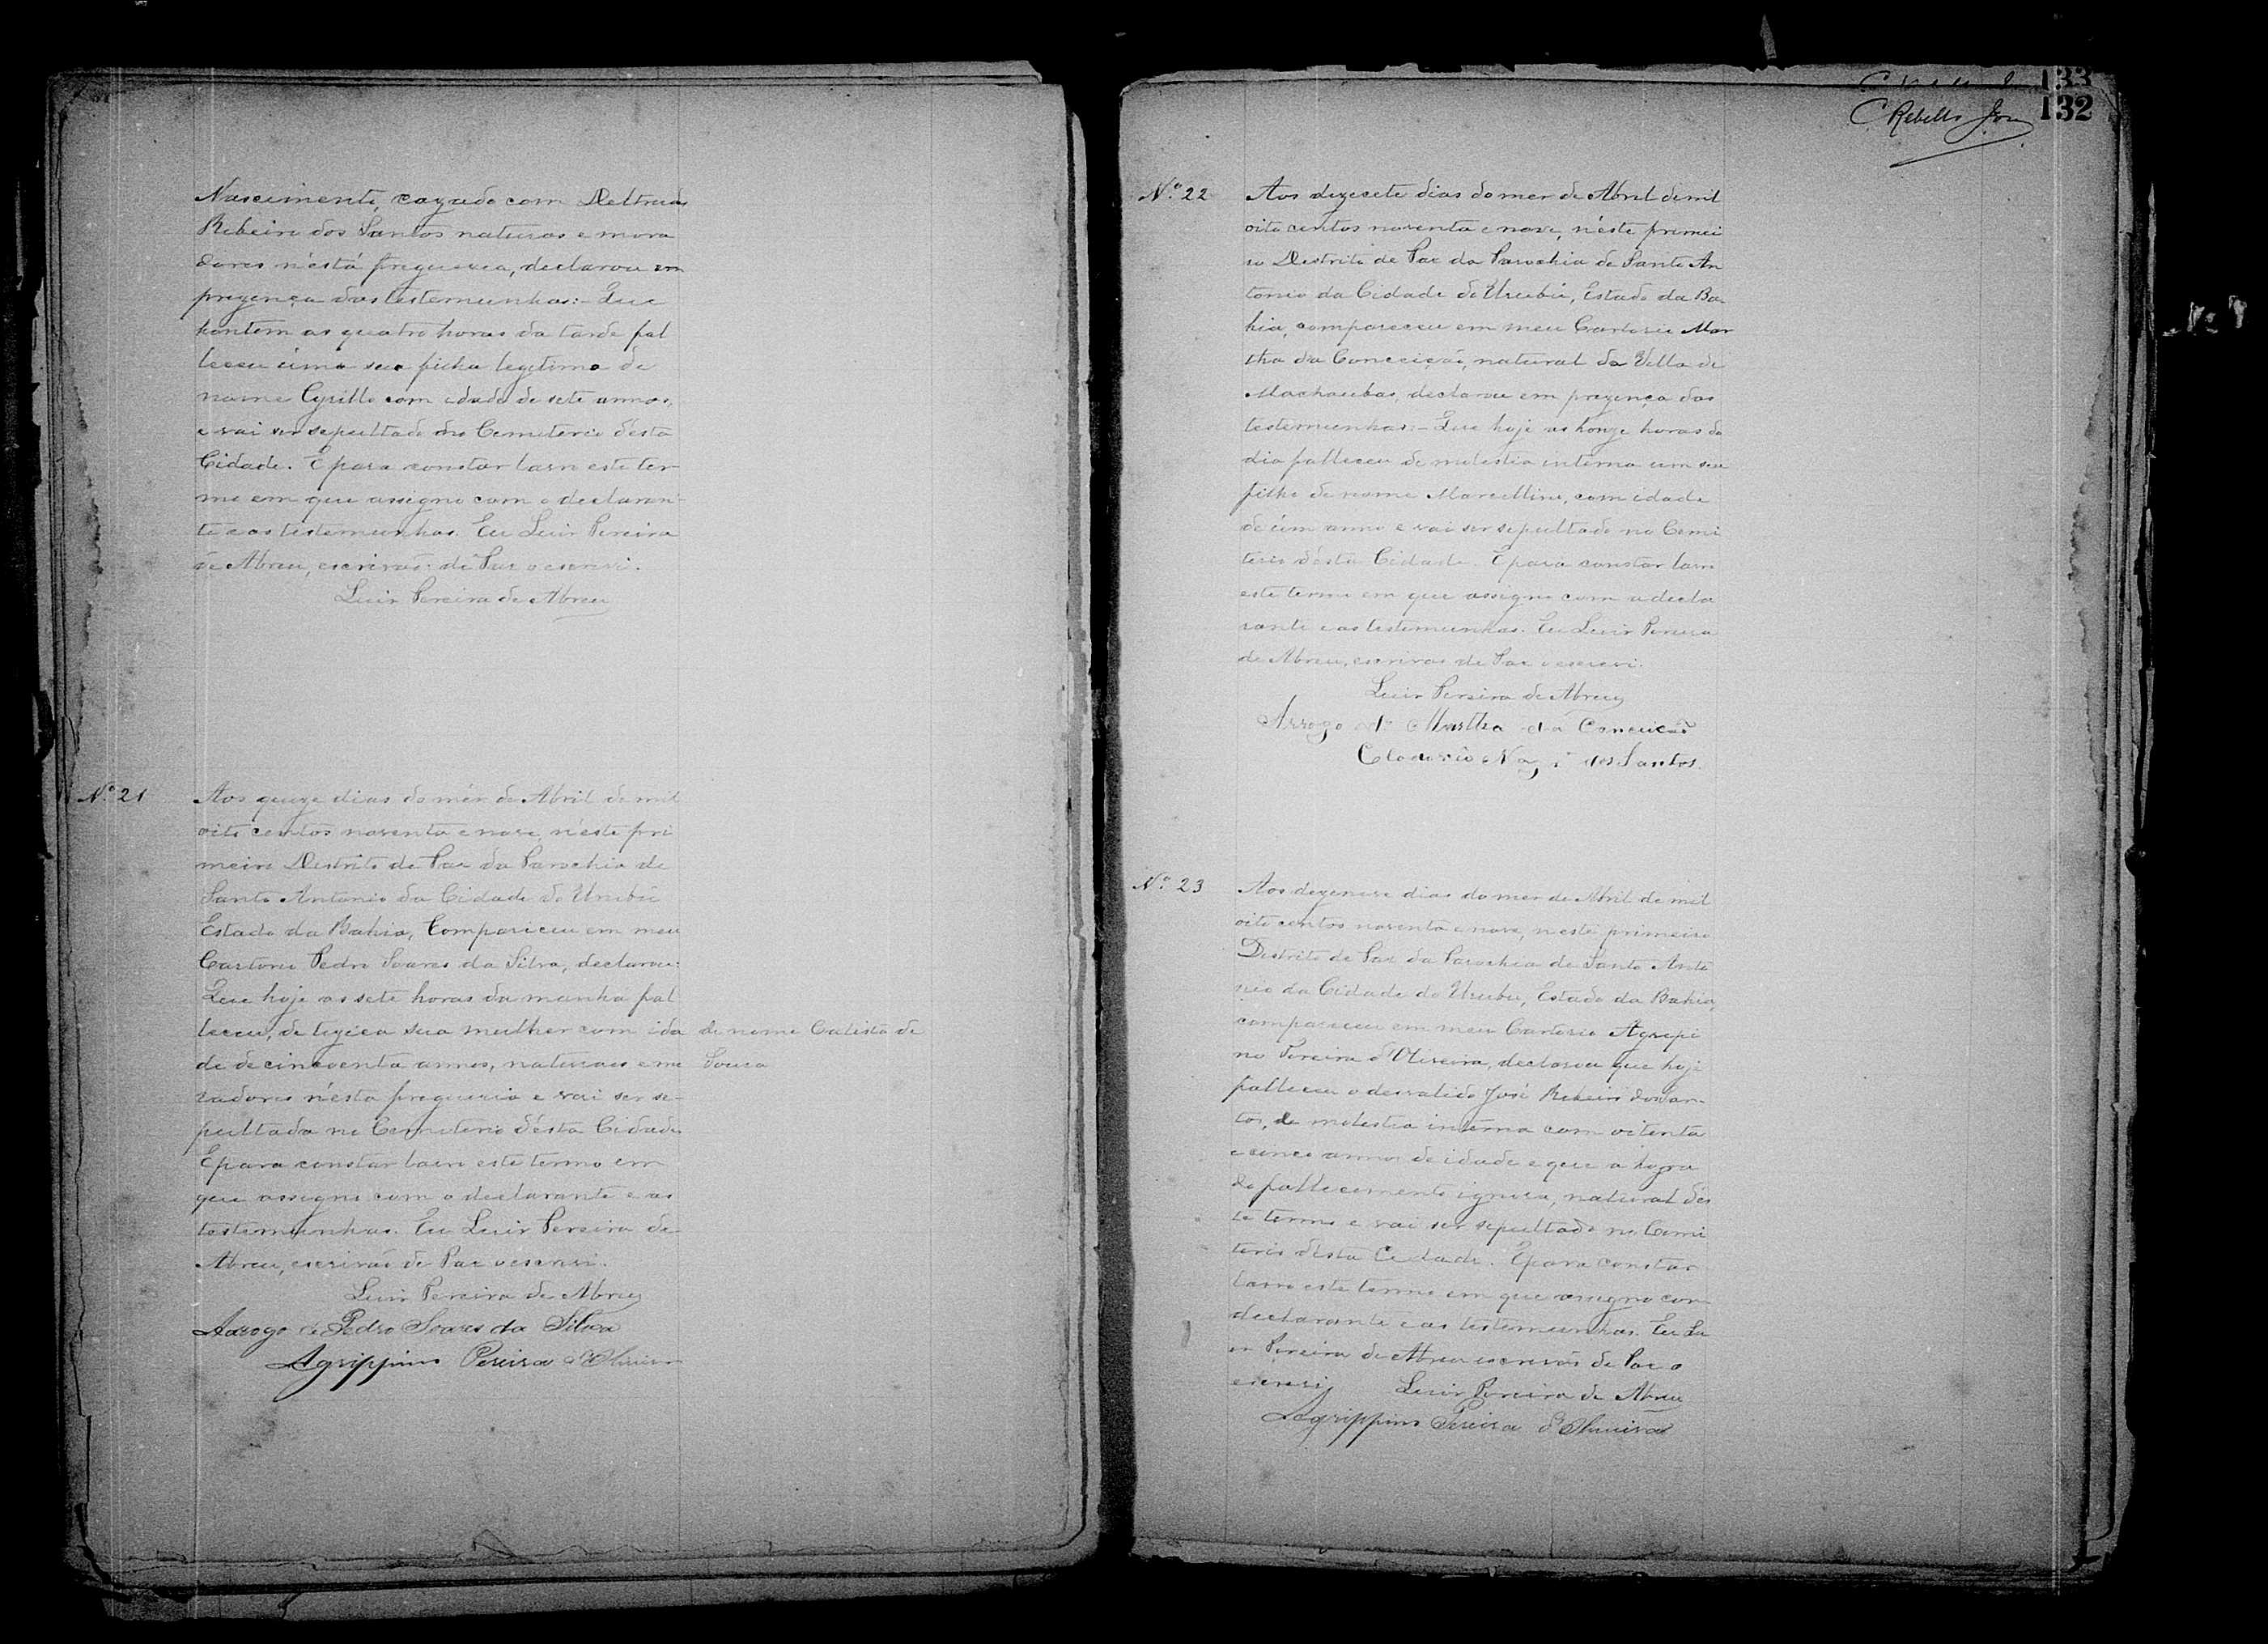 Nascimento, cazado com Deltrudes
Ribeiro dos Santos naturaes e mora
dores n'ésta freguezia, declarou em
prezença das testemunhas:- Que
hontem as quatro horas da tarde fal
leceu úma sua filha legitima de
nome Cyrillo com idade de sete annos,
e vai ser sepultado no Cemiterio d'esta
Cidade. E para constar lavro este ter-
mo em que assigno com o declaran-
te e as testemunhas. Eu Luis Pereira
de Abreu, escrivaõ de Paz o escrevi.
Luis Pereira de Abreu
Nº 21
Aos quize dias do mês de Abril de mil
oito centos noventa e nove, n'éste pri
meiro Destrito de Paz da Parochia de
Santo Antonio da Cidade do Urubú
Estado da Bahia, Compariceu em meu
Cartorio Pedro Soares da Silva, declarou:
Que hoje as sete horas da manhã fal
leceu, de tizica sua mulher com ida
de nome Calista de
Souza
de de cincoenta annos, naturaes e mo
radores n'ésta freguezia e vai ser se-
pultada no Cemiterio d'ésta Cidade
E para constar lavro este termo em
que assigno com o declarante e as
testemunhas. Eu Luis Pereira de
Abreu, escrivaõ de Paz o escrevi.
Luis Pereira de Abreu
Arrogo de Pedro Soares da Silva
Agrippino Pereira d'Oliveira
133
132
C Rebello Jor
Nº 22
Aos dezecete dias do mes de Abril de mil
oito centos noventa e nove, n'éste primei
ro Destrito de Paz da Parochia de Santo An
tonio da Cidade do Urubú, Estado da Ba
hia, compareceu em meu Cartorio Mar
tha da Conceiçaõ, natural da Villa de
Machaubas, declarou em prezença das
testemunhas:- Que hoje as honze horas do
dia falleceu de molestia interna um seu
filho de nome Marcellino, com idade
de úm anno e vai ser sepultado no Cemi
terio d'ésta Cidade. E para constar lavro
este termo em que assigno com a decla
rante e as testemunhas. Eu Luis Pereira
de Abreu, escrivaõ de Paz o escrevi.
Luis Pereira de Abreu
Arrogo de Martha da Conceicaõ
dos Santos
Nº 23
Aos dezenove dias do mes de Abril de mil
oito centos noventa e nove, neste primeiro
Destrito de Paz da Parochia de Santo Anto
nio da Cidade do Urubu, Estado da Bahia,
compareceu em meu Cartorio Agrepi
no Pereira d'Oliveira, declarou que hoje
falleceu o desvalido José Ribeiro dos San-
tos, de molestia interna com oitenta
e cinco annos de idade e que a hora
do fallecemento ignora, natural dés
te termo e vai ser sepultado no Cemi
terio désta Cidade. E para constar
lavro este termo em que assigno com
declarante e as testemunhas. Eu Lu
is Pereira de Abreu escrivaõ de Paz o
escrevi. Luis Pereira de Abreu
Agrippino Pereira d'Oliveira